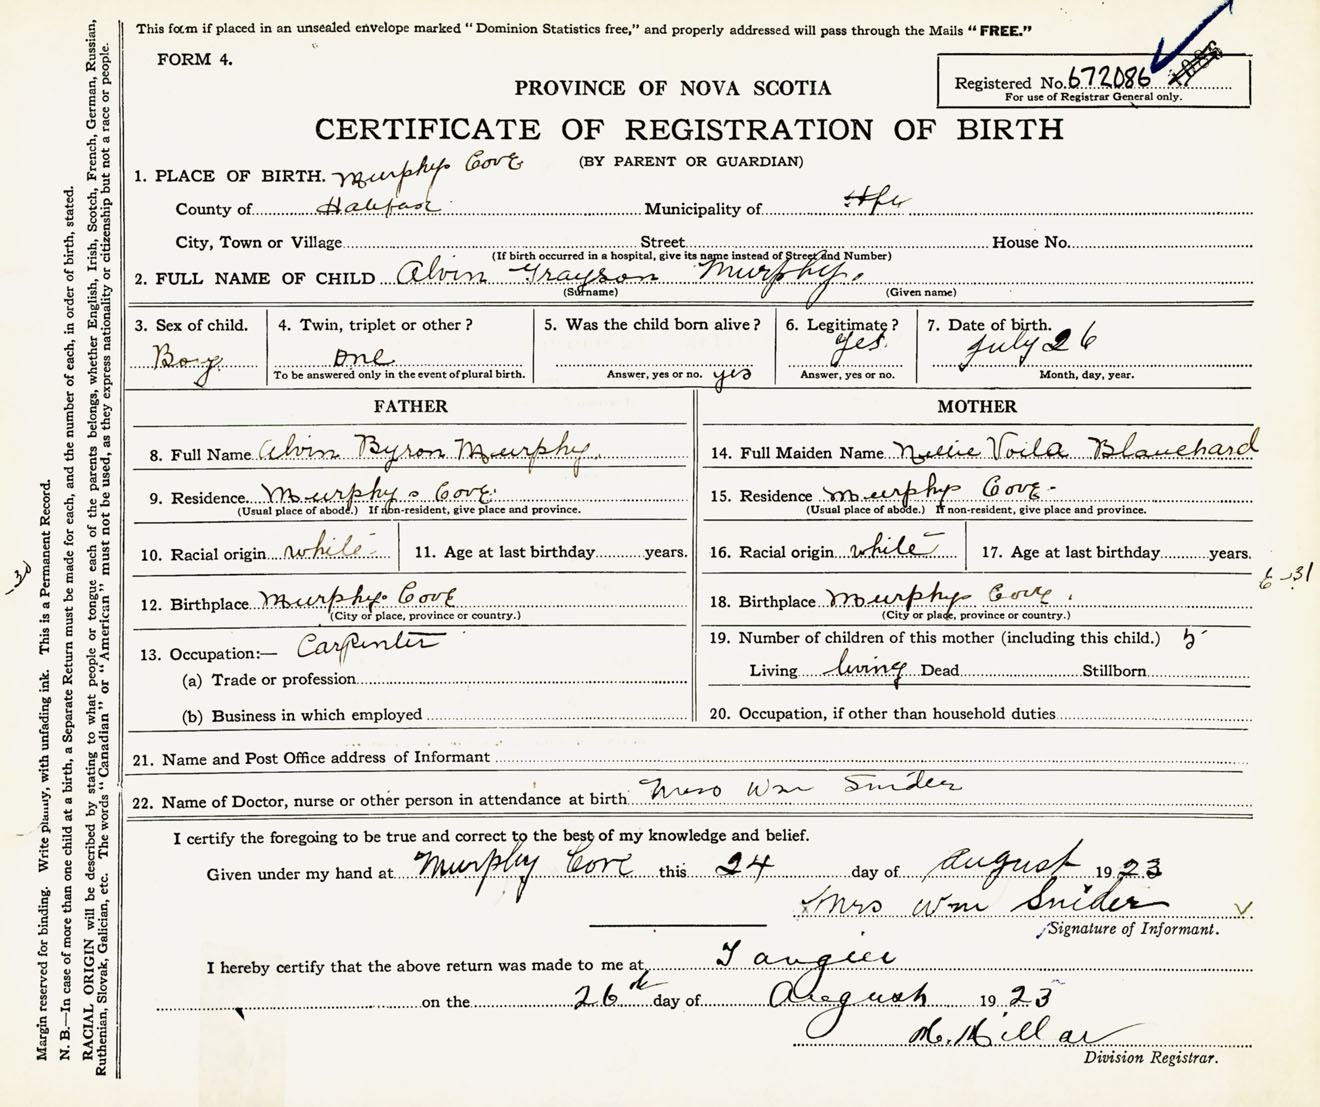 This form if placed in an unsealed envelope marked "Dominion Statistics free," and properly addressed will pass through the Mails "FREE."
FORM 4.
Registered No. 672086
For use of Registrar General only.
PROVINCE OF NOVA SCOTIA
CERTIFICATE OF REGISTRATION OF BIRTH
(BY PARENT OR GUARDIAN)
1. PLACE OF BIRTH. Murphys Cove
County of Halifax Municipality of Hfx
City, Town or Village Street House No.
(If birth occurred in a hospital, give its name instead of Street and Number)
2. FULL NAME OF CHILD Alvin Grayson Murphy.
(Surname) (Given name)
3. Sex of child. 4. Twin, triplet or other? 5. Was the child born alive? 6. Legitimate? 7. Date of birth.
Boy one yes yes. July 26
To be answered only in the event of plural birth. Answer, yes or no. Answer, yes or no. Month, day, year.
FATHER MOTHER
8. Full Name Alvin Byron Murphy. 14. Full Maiden Name Nellie Voila Blanchard
9. Residence Murphys Cove. 15. Residence Murphys Cove-
(Usual place of abode.) If non-resident, give place and province. (Usual place of abode.) If non-resident, give place and province.
10. Racial origin white 11. Age at last birthday years. 16. Racial origin white 17. Age at last birthday years.
12. Birthplace Murphys Cove 18. Birthplace Murphys Cove.
(City or place, province or country.) (City or place, province or country.)
13. Occupation:— Carpenter 19. Number of children of this mother (including this child.) 5
(a) Trade or profession Living living Dead Stillborn
(b) Business in which employed 20. Occupation, if other than household duties
21. Name and Post Office address of Informant
22. Name of Doctor, nurse or other person in attendance at birth Mrs Wm Snider
I certify the foregoing to be true and correct to the best of my knowledge and belief.
Given under my hand at Murphy Cove this 24 day of August 1923
Mrs Wm Snider
Signature of Informant.
I hereby certify that the above return was made to me at Tangier
on the 26th day of August 1923
Division Registrar.
Margin reserved for binding. Write plainly, with unfading ink. This is a Permanent Record.
N. B.—In case of more than one child at a birth, a Separate Return must be made for each, and the number of each, in order of birth, stated.
RACIAL ORIGIN will be described by stating to what people or tongue each of the parents belongs, whether English, Irish, Scotch, French, German, Russian,
Ruthenian, Slovak, Galician, etc. The words "Canadian" or "American" must not be used, as they express nationality or citizenship but not a race or people.
-30
6-31